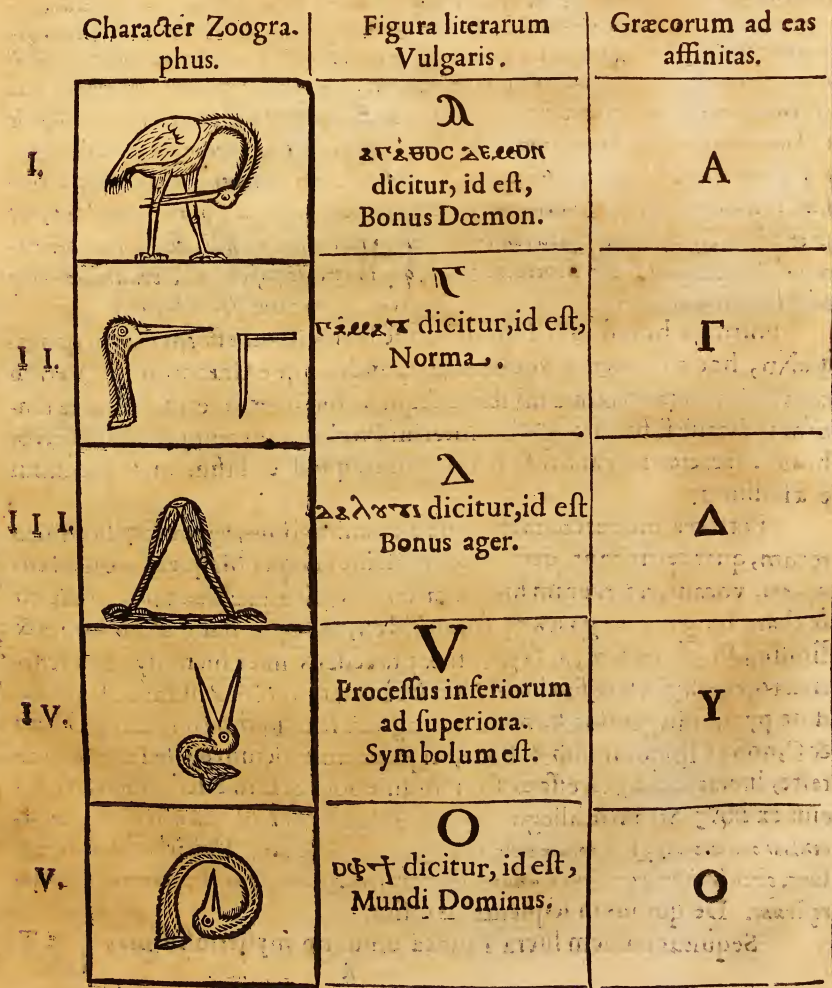 Character Zoogra.
phus.
Figura literarum
Vulgaris.
Græcorum ad eas
affinitas.
I.
ⲁⲅⲁⲑⲟⲥ ⲇⲉⲙⲟⲛ
dicitur, id eſt,
Bonus Dœmon.
A
II.
dicitur, id eſt,
Norma.
Γ
III.
dicitur, id eſt
Bonus ager.
Δ
IV.
V
Proceſſus inferiorum
ad ſuperiora.
Symbolum eſt.
Y
V.
O
dicitur, id eſt,
Mundi Dominus.
O